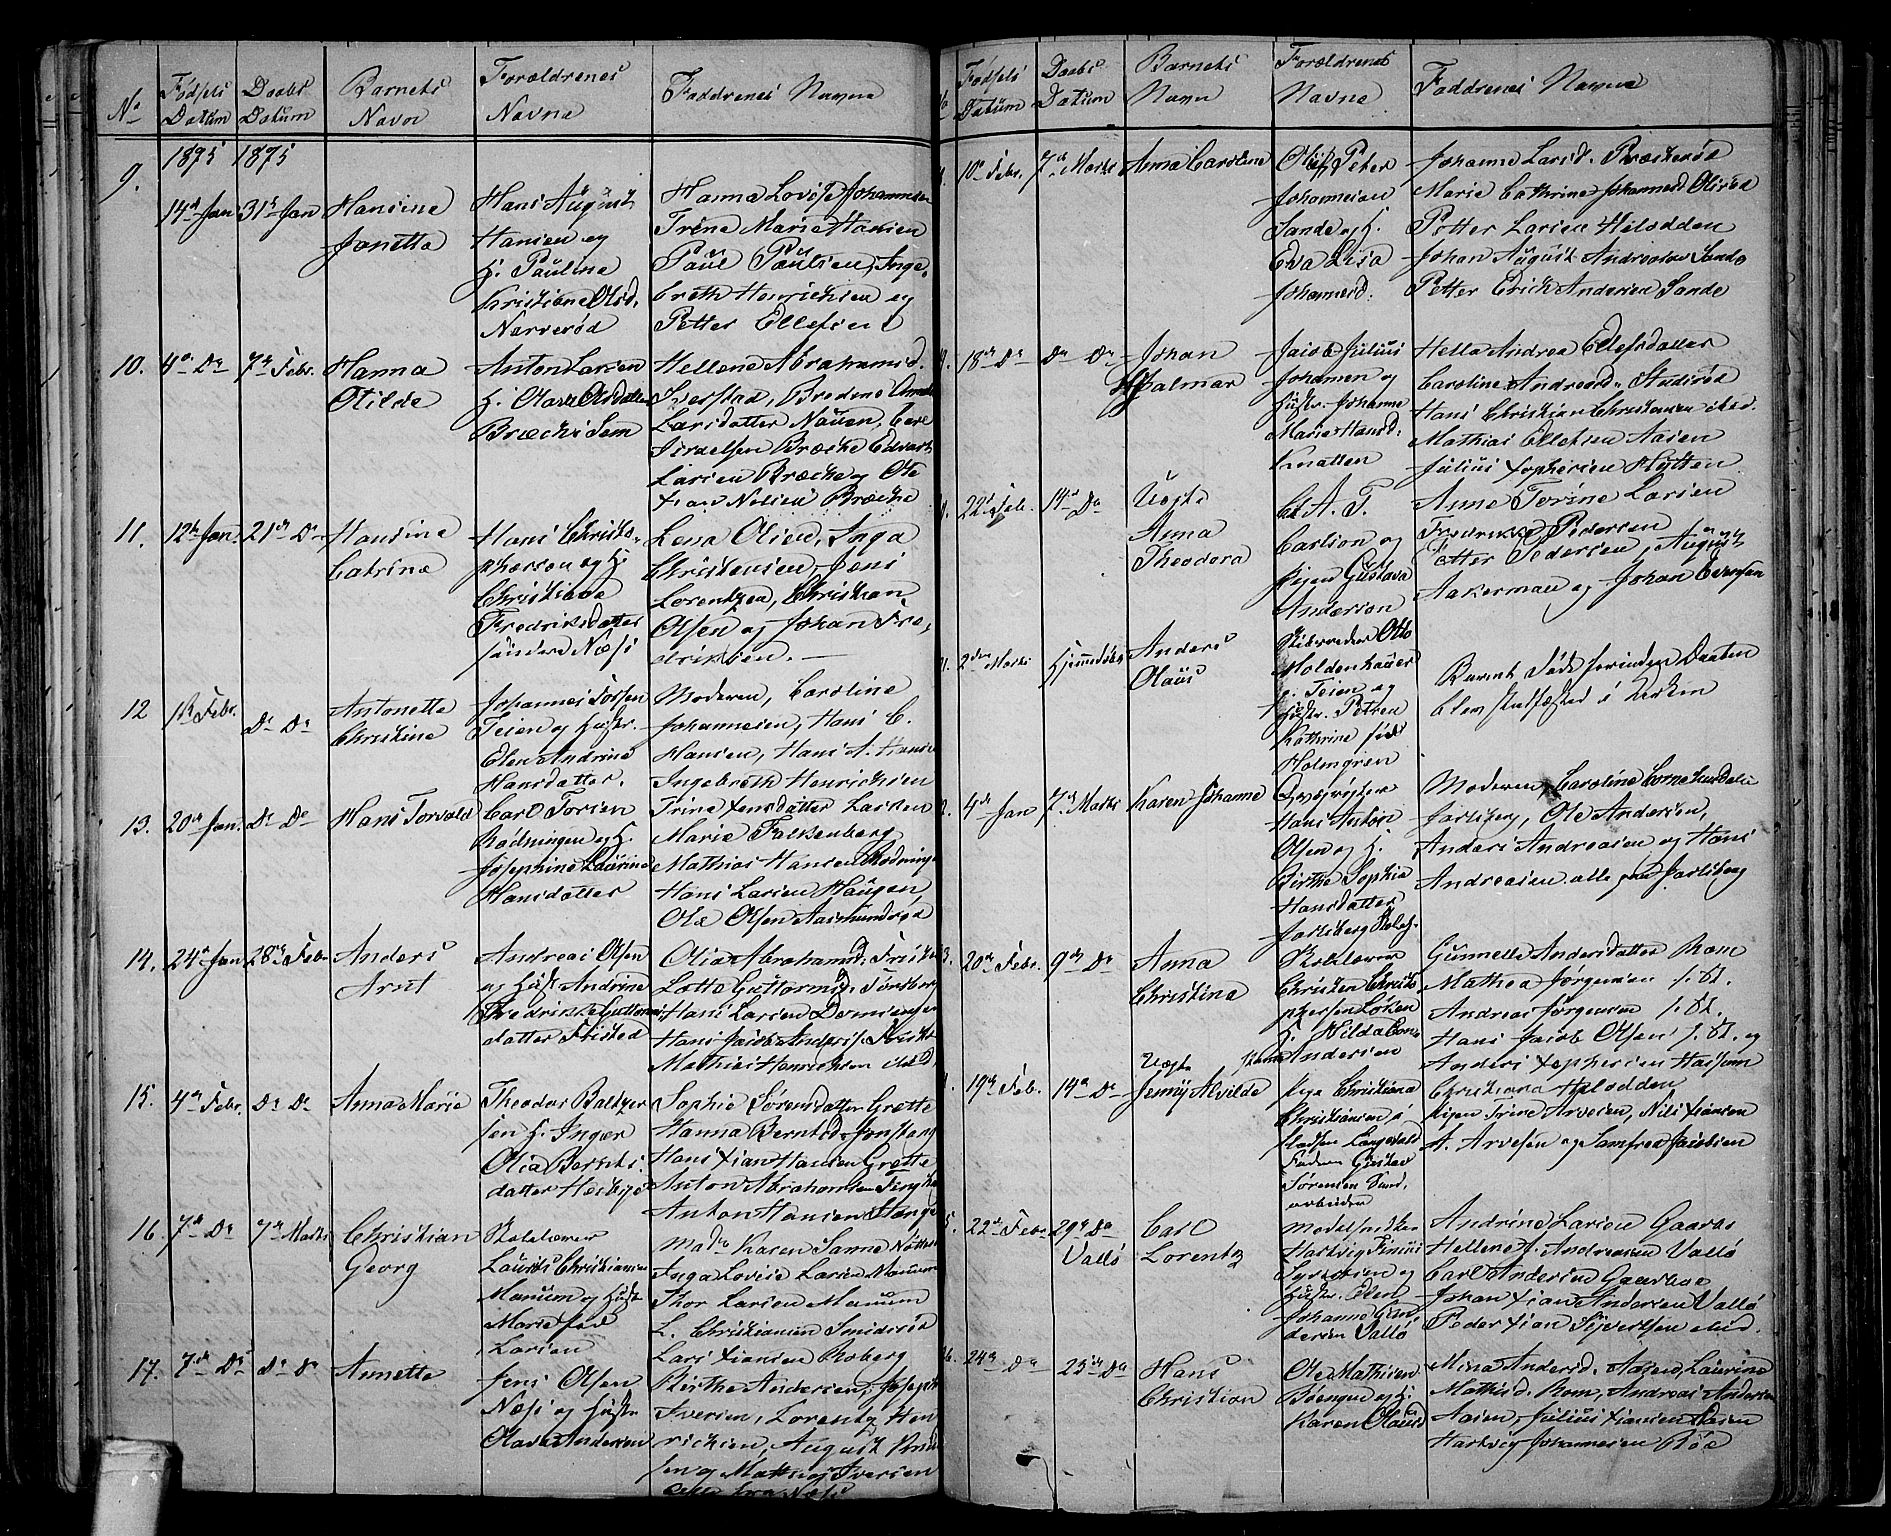 No
Fødsels Datum
Daabs Datum
Barnets Navn
Forældrenes Navne
Faddrenes Navne
9.
1875
1875
14d Jan
31te Jan
Hansine
Janetta
Hans August
Hansen og
H. Pauline
Kristiane Olsd.
Narverød
Hanna Lovise Johannesen
Trine Marie Hansen
Paul Paulsen, Inge-
breth Henrichsen og
Petter Ellefsen
10.
4de Do
7de Febr.
Hanna
Otilde
Anton Larsen
H. Olava Olsdatter
Bræche Sem
Hellene Abrahamsd.
Iverstad, Bredine
Larsdatter Nauen, Carl
Bræche Edvart
Larsen Bræche og Ole
Xian Nilsen Bræche
11.
12te Jan.
21de Do
Hansine
Catrine
Hans Christo-
phersen og H.
Christiane
Fredriksdatter
søndere Næss
Lena Olsen, Inga
Christensen, Jens
Lorentzen, Christian
Olsen og Johan Fre-
driksen.
12
1ste Febr.
Do Do
Antonette
Christine
Johannes
Teien og Hustr.
Elen Andrine
Hansdatter.
Moderen, Caroline
Johannesen, Hans C.
Hansen, Hans A. Hansen
Ingebreth Henrichsen
13.
20de Jan.
Do Do
Hans Torvald
Carl Torsen
Rødningen og H.
Josephine Laurine
Hansdatter
Trine Jensdatter Larsen
Marie Falkenberg
Mathias Hansen Rødninge
Hans Larsen Haugen
Ole Olsen Aasmundrød
14.
24de Jan
28de Febr
Anders
Arnt
Andreas Olsen
og Hust. Andrine
Fredrikke Guttorms
datter Fristed
Olia Abrahamsd. Fristed
Lotte Guttormsd.
Hans Larsen
Hans Jacob
Mathias Henrichsen
15.
4de Febr.
Do Do
Anna Marie
Theodor Baltzer
sen H. Inger
Olia Bernts-
datter
Sophie Sørensdatter Grette
Hanna Berntsd.
Hans Xian Hansen Grette
Anton Abrahamsen
Anton Hansen Stange
16.
7de Do
7de Marts
Christian
Georg
Skolelærer
Laurits Christiansen
Manum og Hustr
Marie fød
Larsen
Mad. Karen Sanne
Inga Lovise Larsen Manum
Thor Larsen Manum
L. Christiansen Smiderød
Lars Xiansen Roberg
17.
7de Do
Do Do
Annette
Jens Olsen
Næss og Hustr
Olava Andersen
Birthe Andersen, Joseph
Iversen, Lorentz Hen
richsen, August
sen og Mathias Iversen
alle fra Næss
No
Fødsels Datum
Daabs Datum
Barnets Navn
Forældrenes Navne
Faddrenes Navne
10de Febr.
7de Marts
Anna Caroline
Oluf Peter
Johannesen
Sande og H.
Eva Lisa
Johannesd.
Johanne Larsd. Præsterød
Marie Cathrine Johannesd Olsrød
Petter Larsen Helodden
Johan August Andreasen Sande
Petter Erick Andersen Sande
18de Do
Do Do
Johan
Hjalmar
Jacob Julius
Johansen og
Hustr. Johanne
Marie Hansd.
Knatten
Hella Andrea Ellefsdatter
Caroline Andreasd.
Hans Christian Christensen
Mathias Ellefsen Aasen
Julius Xophersen Hytten
22de Feb.
14de Do
Uægte
Anna
Theodora
C. A. T.
Carlson og
Pigen Gustava
Anderson
Anne Torine Larsen
Fredrikke Pedersen
Petter Pedersen, August
Aakerman og Johan Evensen
2den Marts
Hjemmedøbt
Anders
Olaus
Skibsreder Otto
Moldenhauer
p. Teien og
Hustr. Petrea
Kathrine født
Holmgren
Barnet døde førinden Daaben
blev stadfæsted i Kirken
4de Jan
7de Marts
Karen Johanne
Hans Anton
Olsen og H.
Birthe Sophia
Hansdatter
Jarlsberg
Moderen, Caroline
Jarlsberg, Ole Andersen,
Anders Andreasen og Hans
Andreasen alle paa Jarlsberg
20de Febr.
9de Do
Anna
Christina
Christen Christo
phersen Løken
H. Hilda
Andersen
Gunnelle Andersdatter Rom
Mathea Jørgensen
Andreas Jørgensen
Hans Jacob Olsen og
Anders Xophersen
19de Feb.
14de Do
Uægte
Jenny Alvilde
Pige Christiana
Christiansen i
Faderen Gustav
Sørensen
arbeider
Christiana Helodden
Pigen Trine Arvesen, Nils Xiansen
A. Arvesen og Samfred Jacobsen
22de Febr
29de Do
Vallø
Carl
Lorentz
Hartvig
og
Hustr. Elen
Johanne
dersen Vallø
Andrine Larsen Gaarbo
Hellene A. Andreasen Vallø
Carl Andersen Gaarboe
Johan Xian Andersen Vallø
Peder Xian Syvertsen
24de Do
25de Do
Hans
Christian
Ole Mathisen
og H.
Karen Olausd
Mina Andersd. Aasen, Laurine
Mathisd. Rom, Andreas Andersen
Aasen, Julius Xiansen Aasen
Hartvig Johannesen Røe